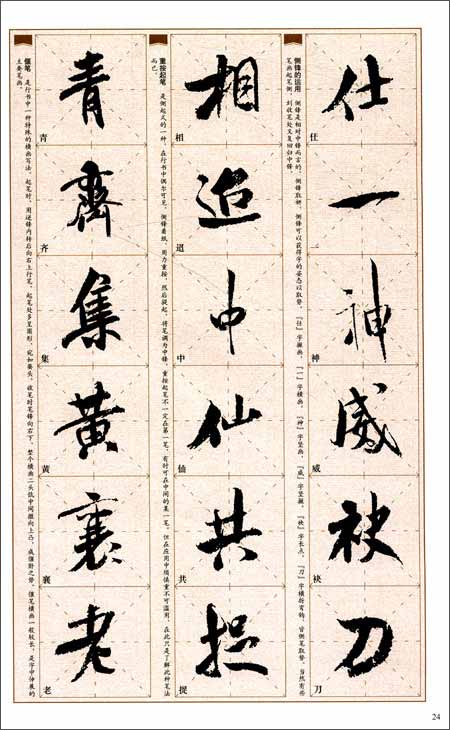 仕
仕
一
一
神
神
威
威
袂
袂
刀
刀
侧锋的运用 侧锋是相对中锋而言的。侧锋取妍，侧锋可以获得字的姿态以取势。『仕』字撇画，『一』字横画，『神』字竖画，『威』字竖撇，『袂』字长点，『刀』字横折弯钩，皆侧笔取势。当然有些
笔画起笔侧，到收笔处又复回归中锋。
相
相
中
中
仙
仙
共
共
捉
捉
重按起笔 是侧起式的一种，在行书中偶尔可见。侧锋着纸，用力重按，然后提起，将笔调为中锋。重按起笔不一定在第一笔，有时可在中间的某一笔。但在应用中须慎重不可滥用，在此只是了解此种笔法
而已。
青
青
齊
齐
集
集
黄
黄
襄
襄
老
老
偃笔 是行书中一种特殊的横画写法。起笔时，用逆锋内转后向右上行笔，起笔处多呈圆形，宛如蚕头，收笔时笔锋向右下，整个横画二头低中间微向上凸，成偃卧之势。偃笔横画一般较长，是字中伸展的
主要笔画。
24